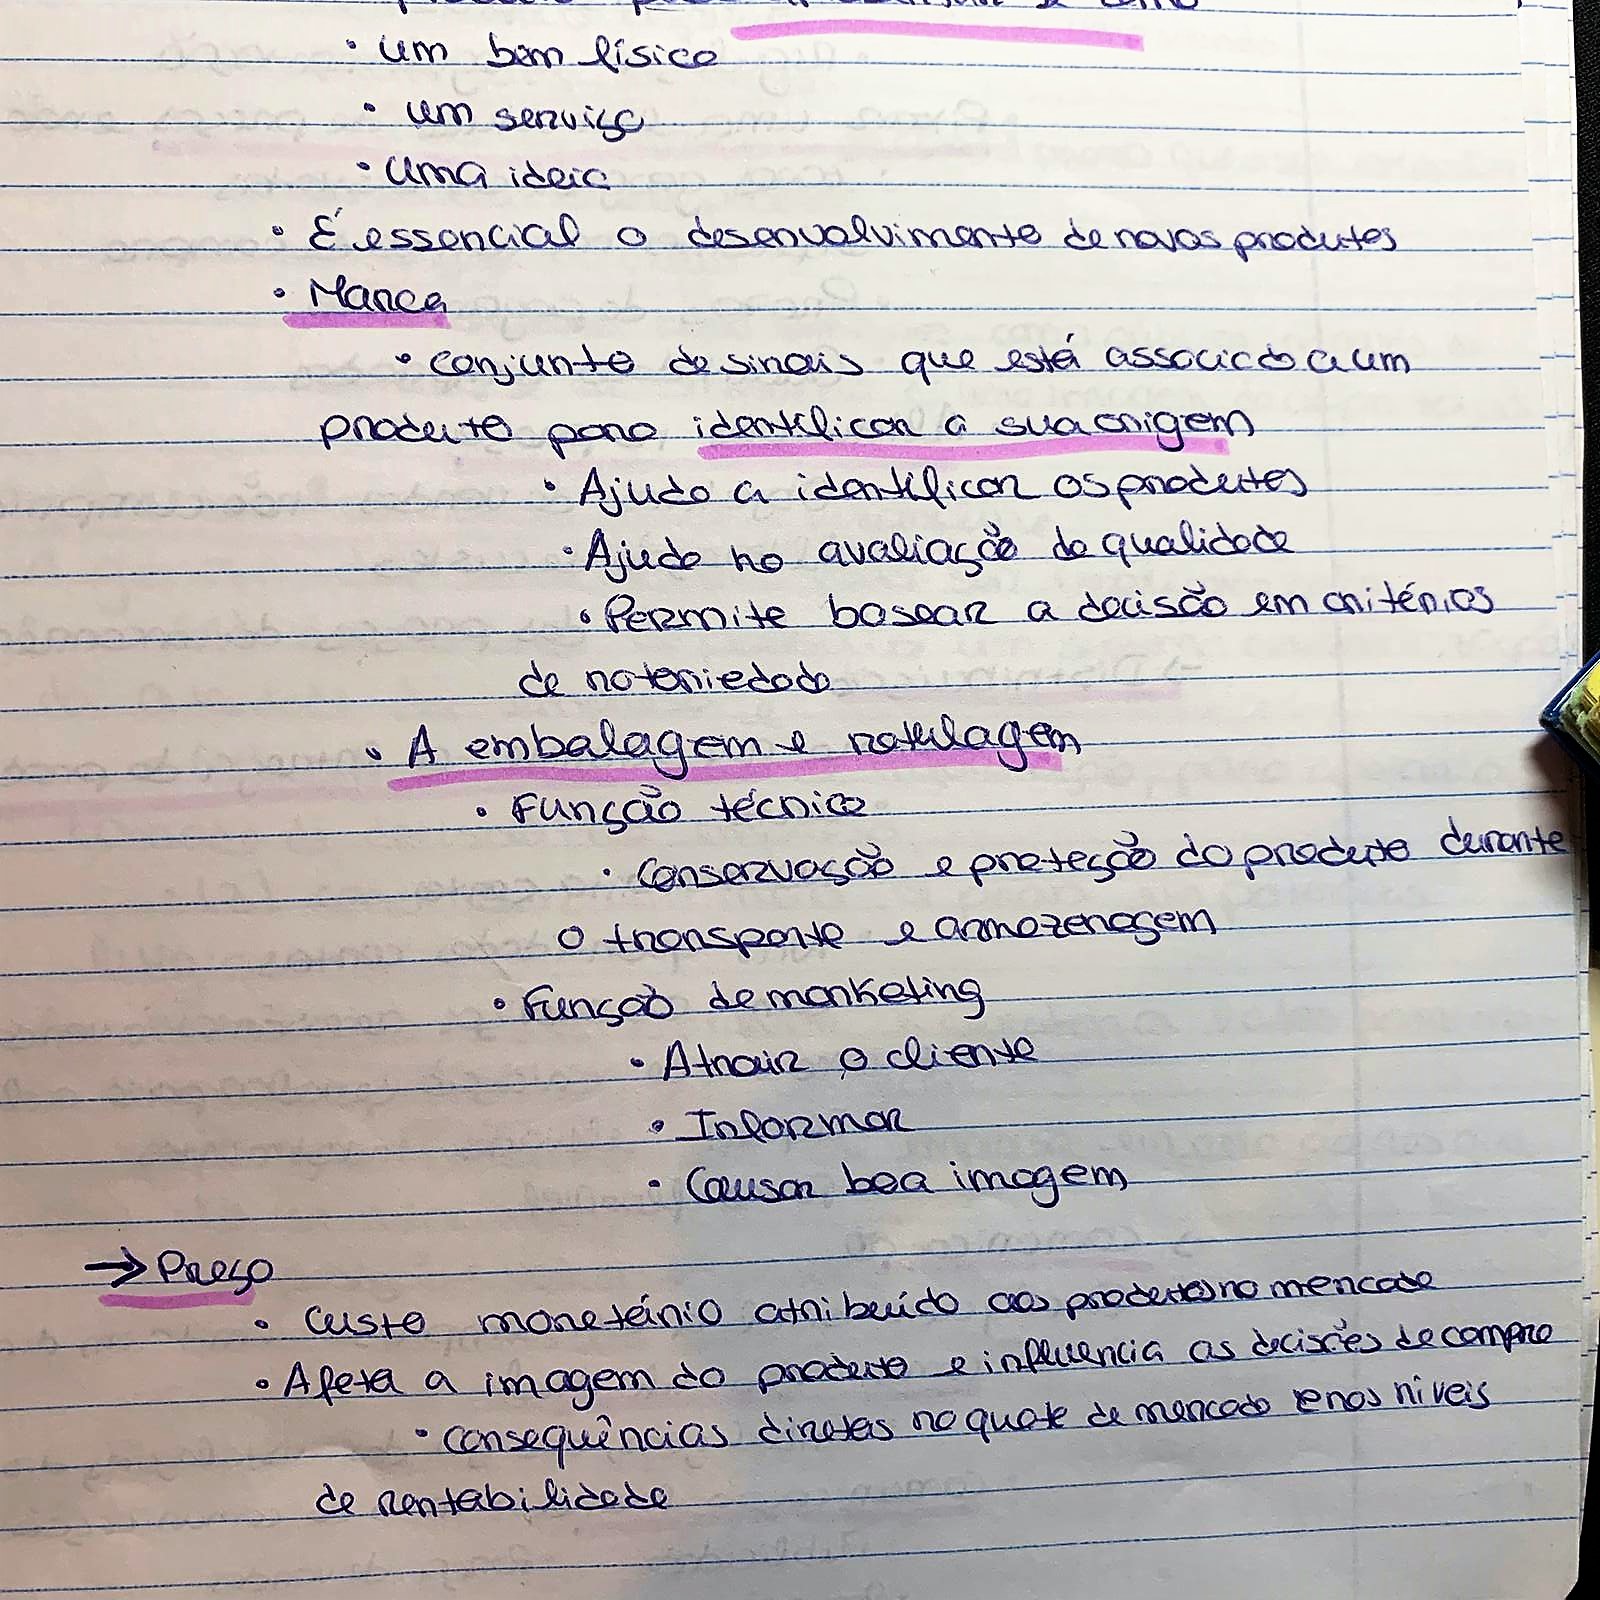 • um bem físico
• um serviço
• uma ideia
• É essencial o desenvolvimento de novos produtos
• Marca
• conjunto de sinais que está associado a um
produto para identificar a sua origem
• Ajuda a identificar os produtos
• Ajuda na avaliação da qualidade
• Permite basear a decisão em critérios
de notoriedade
• A embalagem e rotulagem
• Função técnica
• Conservação e proteção do produto durante
o transporte e armazenagem
• Função de marketing
• Atrair o cliente
• Informar
• Causar boa imagem
→ Preço
• Custo monetário atribuído aos produtos no mercado
• Afeta a imagem do produto e influencia as decisões de compra
• consequências diretas na quota de mercado e nos níveis
de rentabilidade